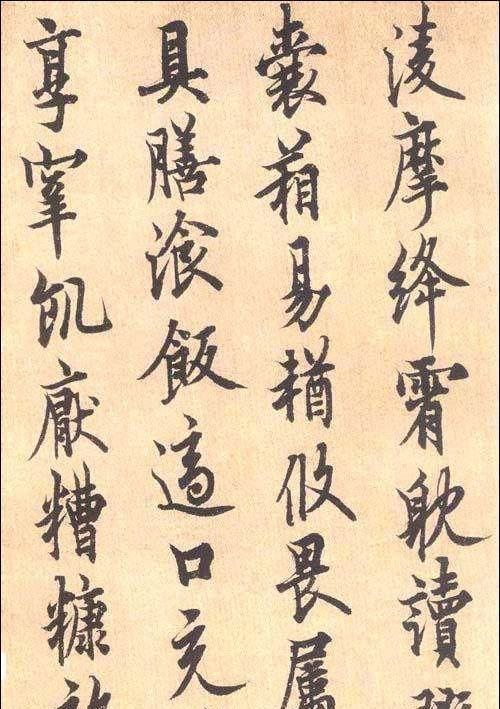 淩摩絳霄躭讀
囊箱易輶攸畏屬
具膳湌飯適口充
享宰飢厭糟糠